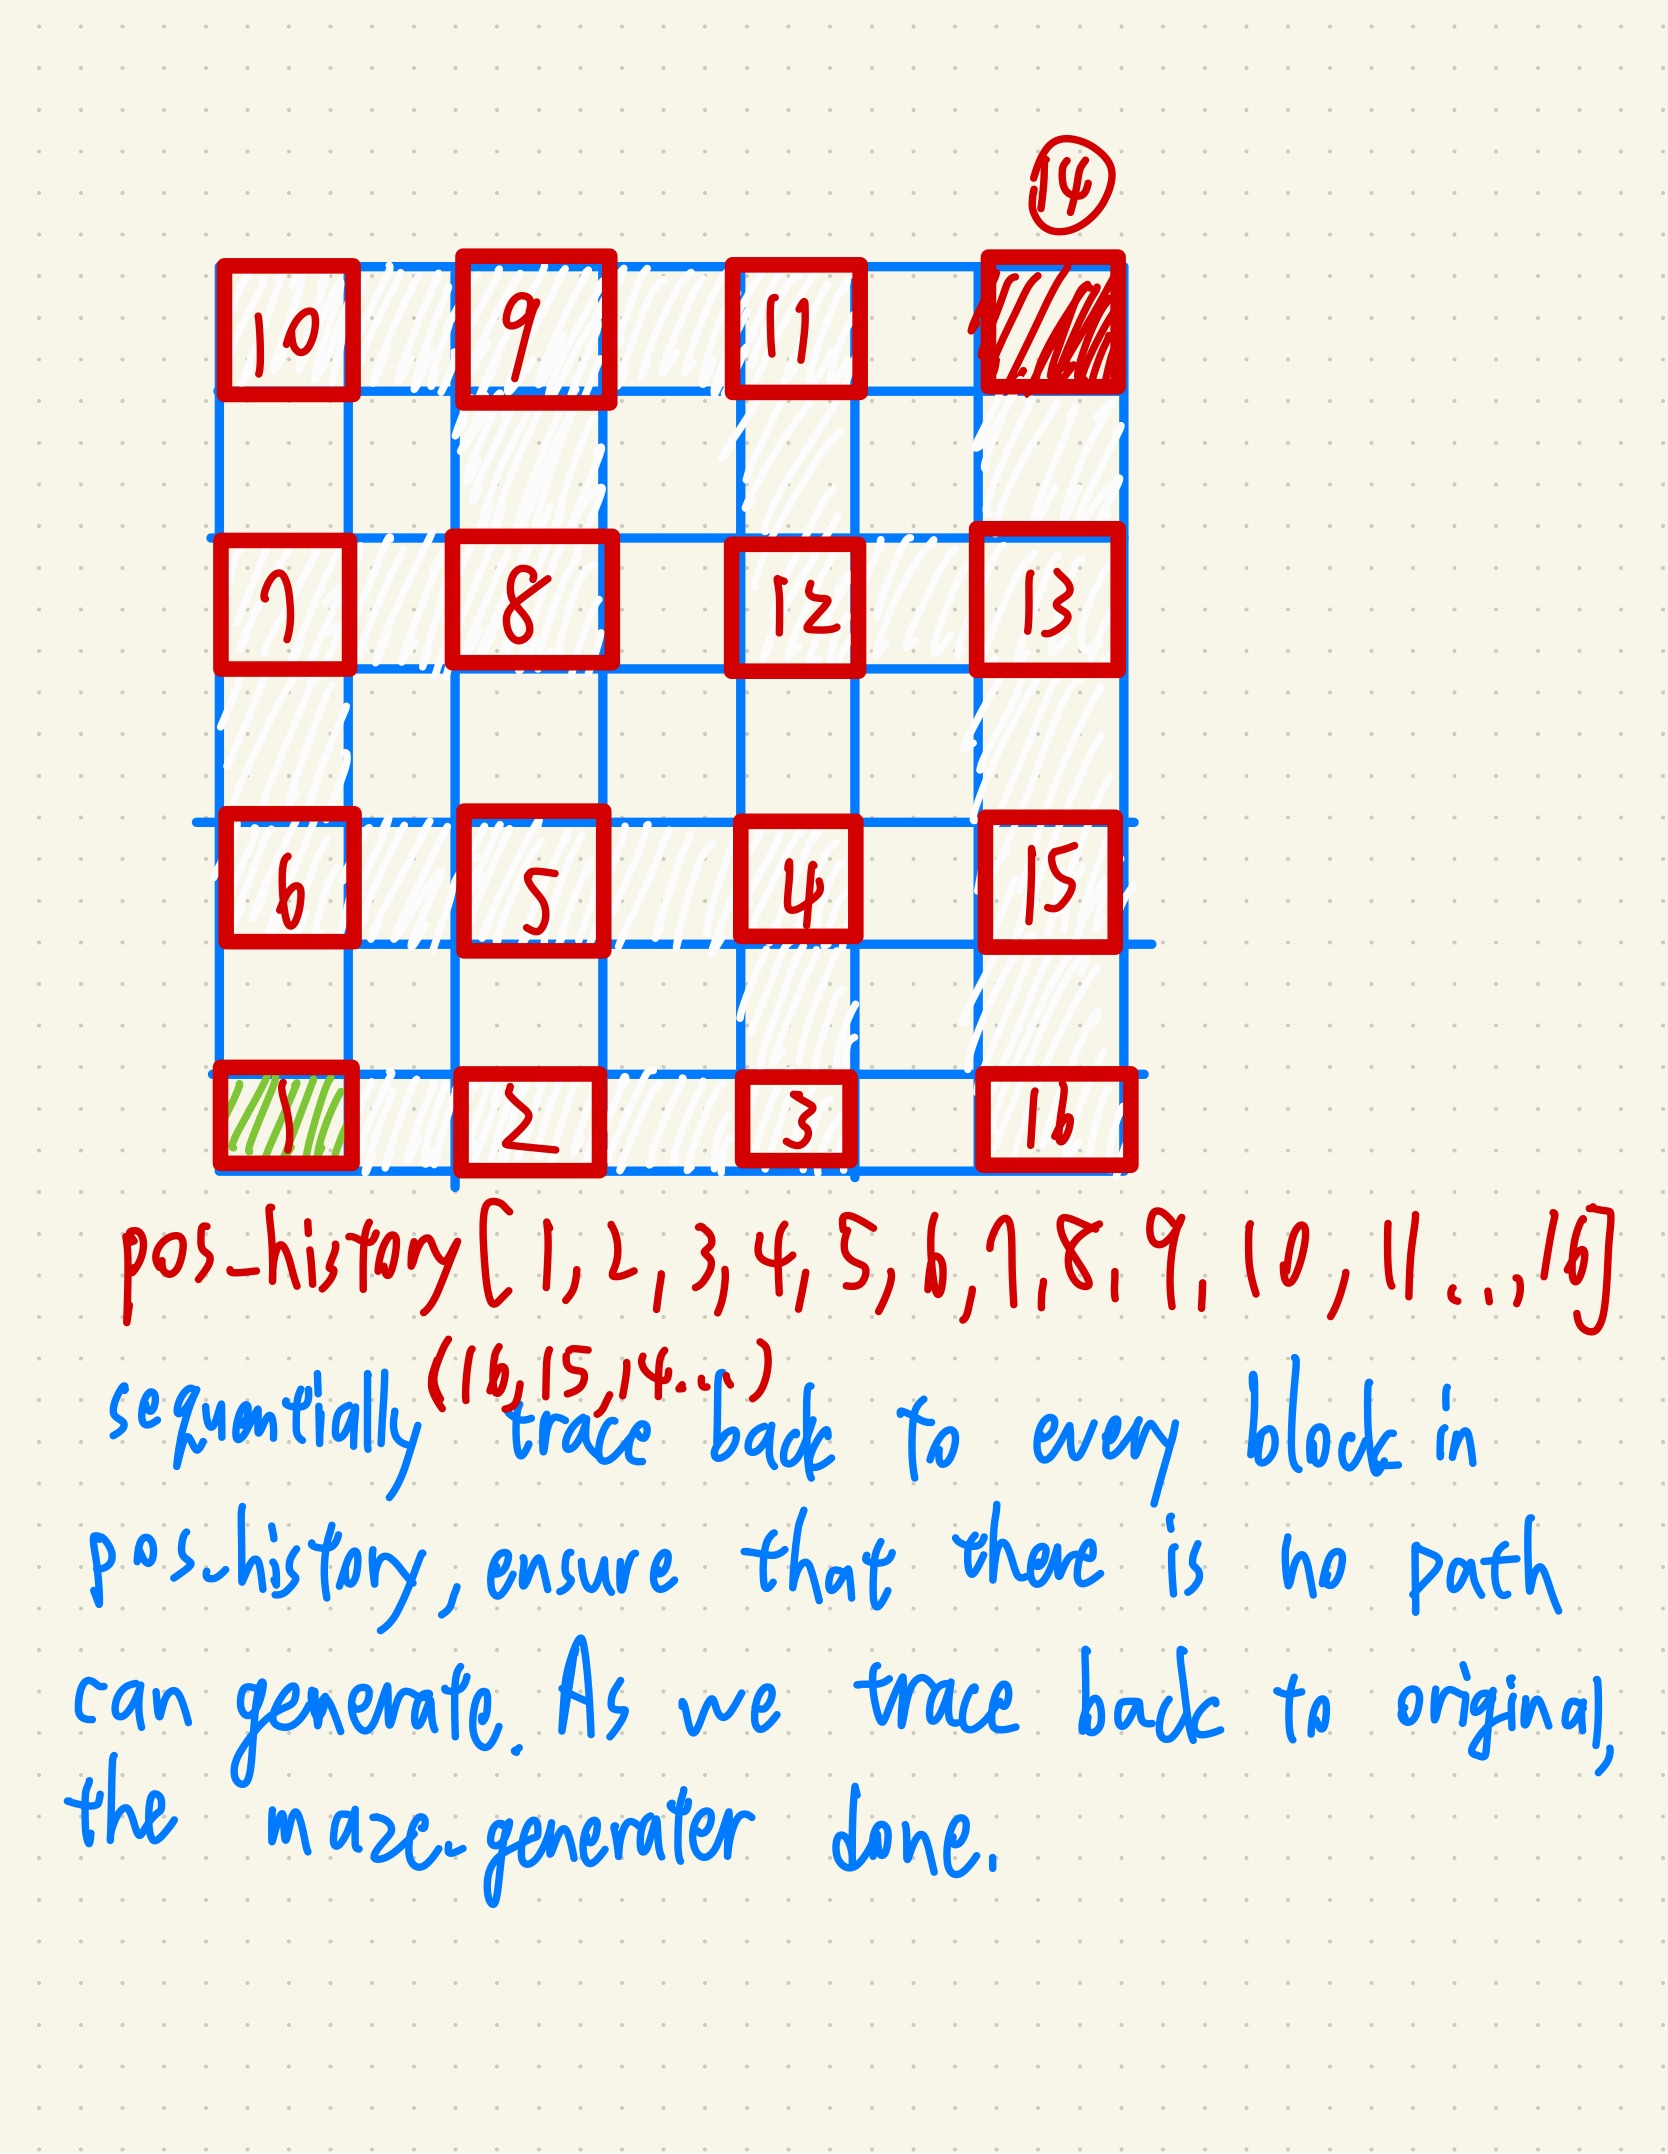 14
10 9 11
7 8 12 13
6 5 4 15
1 2 3 16
pos_history [1, 2, 3, 4, 5, 6, 7, 8, 9, 10, 11..., 16]
(16, 15, 14...)
sequentially trace back to every block in
pos_history, ensure that there is no path
can generate. As we trace back to original,
the maze_generater done.